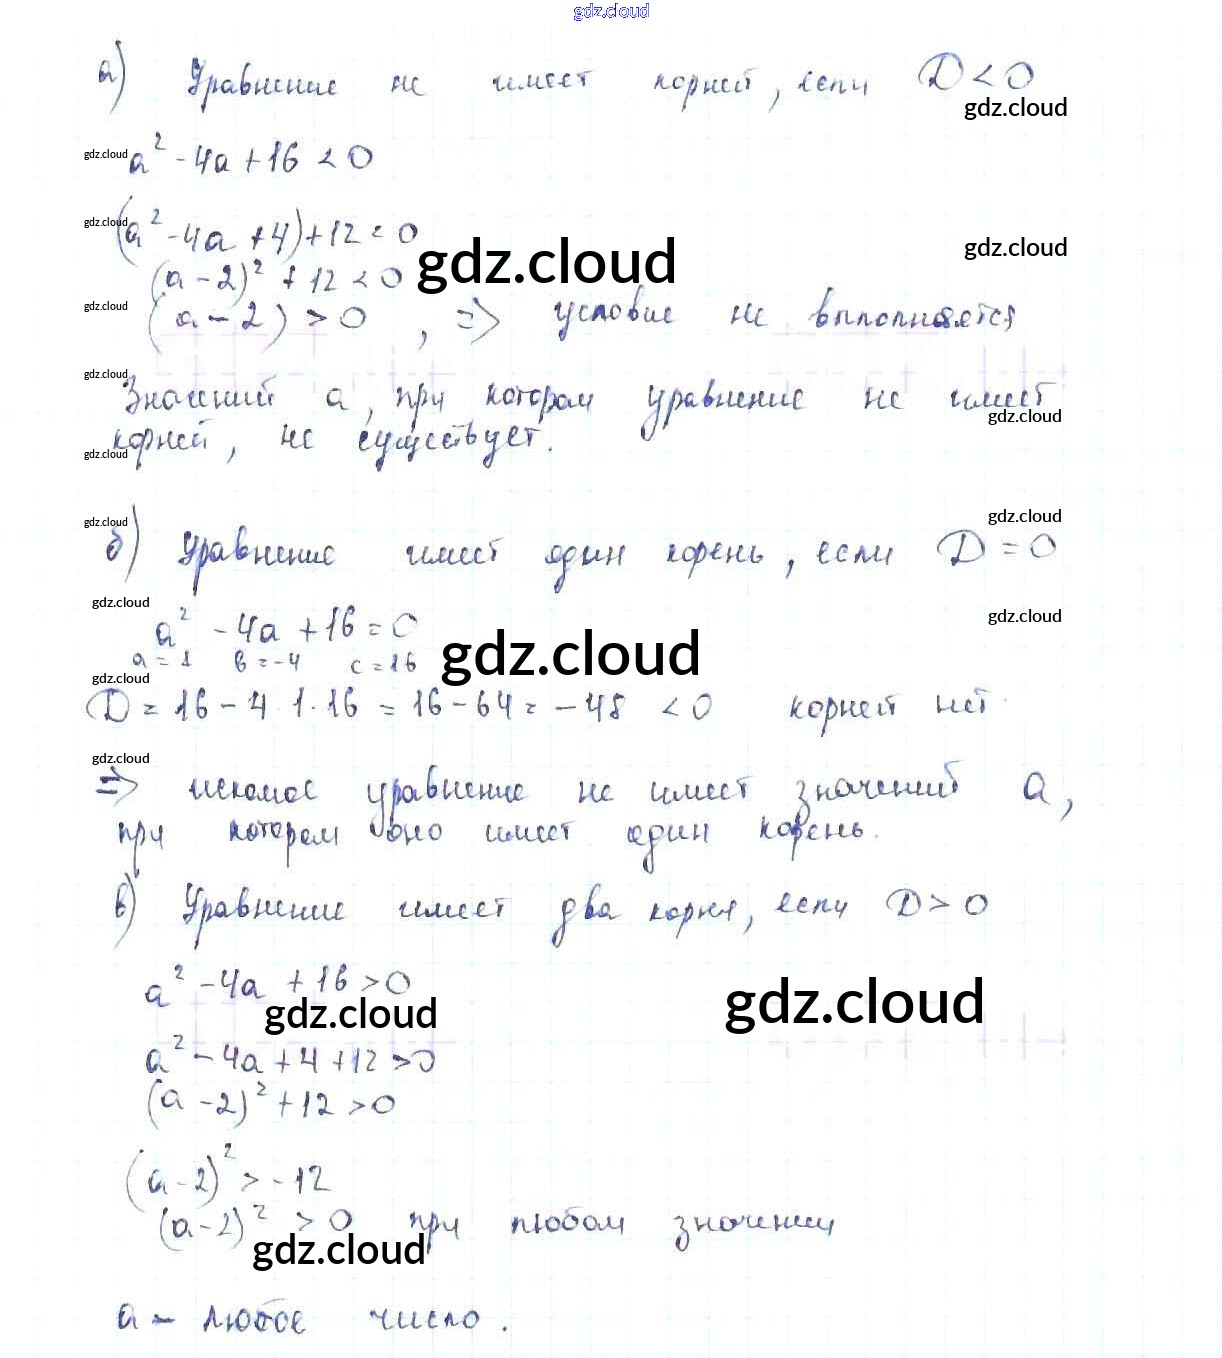 gdz.cloud
а) Уравнение не имеет корней, если D < 0
gdz.cloud
gdz.cloud a² - 4a + 16 < 0
gdz.cloud (a² - 4a + 4) + 12 < 0
gdz.cloud gdz.cloud
(a - 2)² + 12 < 0
gdz.cloud (a - 2) > 0, => условие не выполняется
gdz.cloud
Значений a, при котором уравнение не имеет
gdz.cloud
корней, не существует.
gdz.cloud
gdz.cloud gdz.cloud
б) Уравнение имеет один корень, если D = 0
gdz.cloud gdz.cloud
a² - 4a + 16 = 0
gdz.cloud
a = 1 в = -4 c = 16
gdz.cloud
D = 16 - 4 · 1 · 16 = 16 - 64 = -48 < 0 корней нет
gdz.cloud
=> искомое уравнение не имеет значений a,
при котором оно имеет один корень.
в) Уравнение имеет два корня, если D > 0
a² - 4a + 16 > 0
gdz.cloud gdz.cloud
a² - 4a + 4 + 12 > 0
(a - 2)² + 12 > 0
(a - 2)² > -12
(a - 2)² > 0 при любом значении
gdz.cloud
a - любое число.